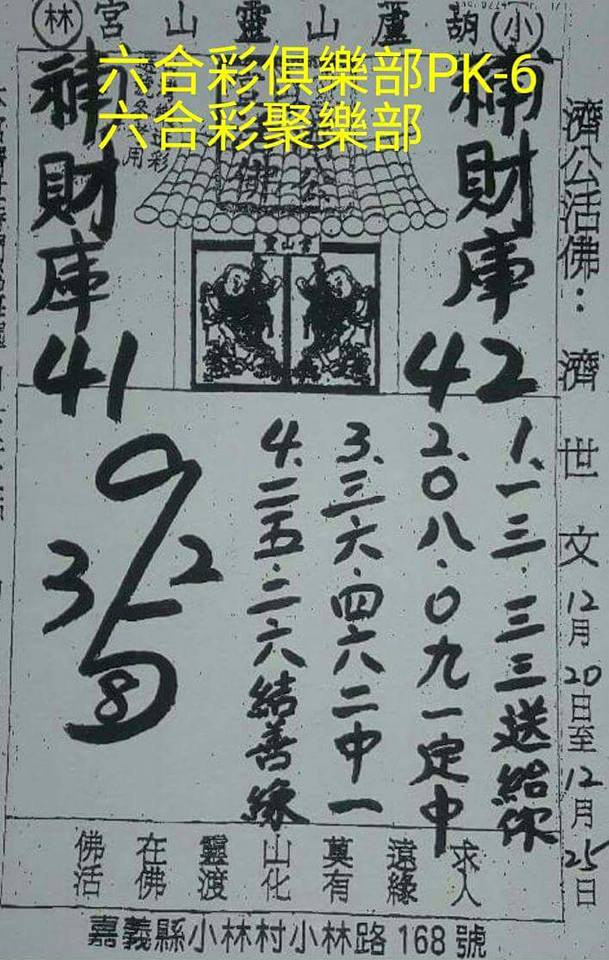 小 胡蘆山靈山宮 林
六合彩俱樂部PK-6
六合彩聚樂部
濟公活佛：濟世文 12月20日至12月25日
財庫
42
財庫
41
靈山宮
1、一三．三三送給你
2、0八．0九一定中
3、三六．四六二中一
4、二五．二六結善緣
9
3
2
5
8
求人
遠緣
莫有
山化
靈渡
在佛
佛活
嘉義縣小林村小林路168號